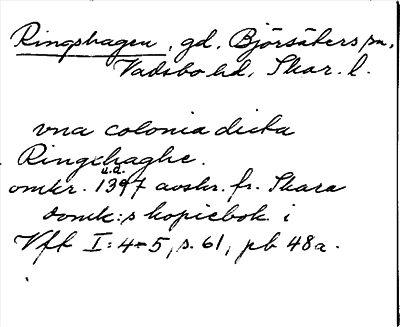 Ringshagen, gd, Björsäters sn,
Vadsbo hd, Skar. l.
vna colonia dicta
Ringxhaghe.
u.d.
omkr. 1397 avskr. fr. Skara
domk:s kopiebok i
Vfk I: 4-5, s. 61, pb 48a.